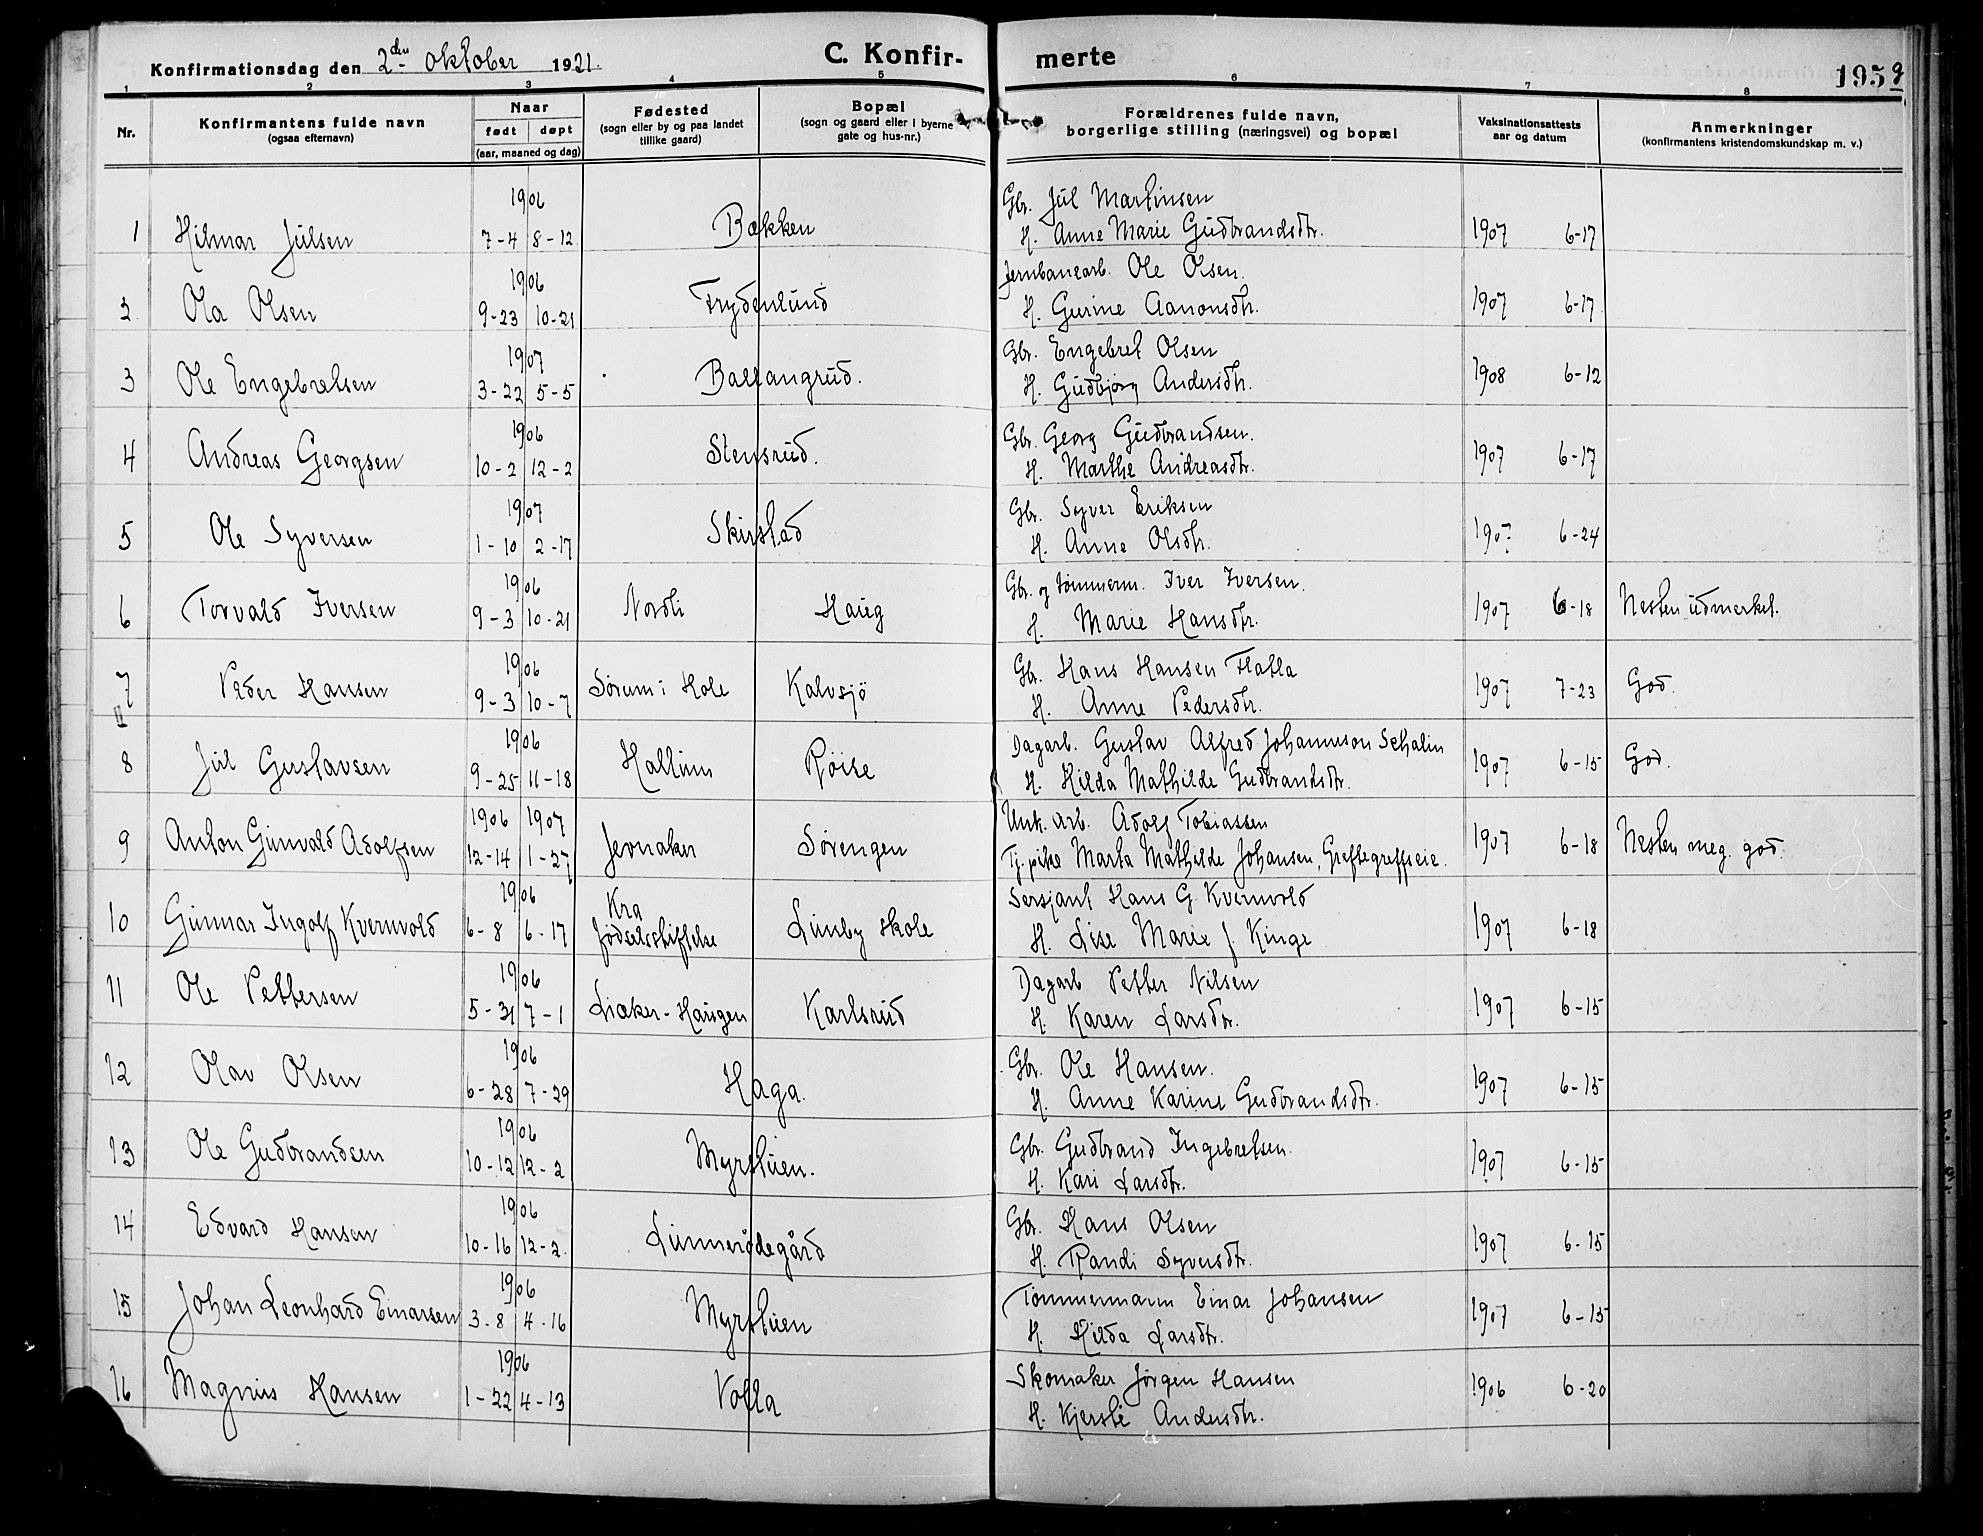 Konfirmationsdag den 2den oktober 1921.
C. Konfir-
merte
195
1 2 3 4 5 6 7 8
Nr.
Konfirmantens fulde navn
(ogsaa efternavn)
Naar
født døpt
(aar, maaned og dag)
Fødested
(sogn eller by og paa landet
tillike gaard)
Bopæl
(sogn og gaard eller i byerne
gate og hus-nr.)
Forældrenes fulde navn,
borgerlige stilling (næringsvei) og bopæl
Vaksinationsattests
aar og datum
Anmerkninger
(konfirmantens kristendomskundskap m. v.)
1906 Gbr. Jul Martinsen
1 Hilmar Julsen 7-4 8-12 Bækken H. Anne Marie Gudbrandsdtr. 1907 6-17
1906 Jernbanearb. Ole Olsen.
2 Ola Olsen 9-23 10-21 Frydenlund H. Gurine Aanonsdtr. 1907 6-17
1907 Gbr. Engebret Olsen
3 Ole Engebretsen 3-22 5-5 Ballangrud. H. Gudbjørg Andersdtr. 1908 6-12
1906 Gbr. Georg Gudbrandsen.
4 Andreas Georgsen 10-2 12-2 Stensrud. H. Marthe Andreasdtr. 1907 6-17
1907 Gbr. Syver Eriksen
5 Ole Syversen 1-10 2-17 Skirstad H. Anne Olsdtr. 190? 6-24
1906 Gbr. og tømmerm. Iver Iversen.
6 Torvald Iversen 9-3 10-21 Nordli Haug H. Marie Hansdtr. 1907 6-18 Nesten udmerket.
1906 Gbr. Hans Hansen Flatla
7 Peder Hansen 9-3 10-7 Sørum i Hole Kalvsjø H. Anne Pedersdtr. 1907 7-23 God.
II
1906 Dagarb. Gustav Alfred Johannson Schalin
8 Jul Gustavsen 9-25 11-18 Hallum Røise H. Hilda Mathilde Gudbrandsdtr. 1907 6-15 God.
1906 1907 Unk. arb. Adolf Tobiassen
9 Anton Gunvald Adolfsen 12-14 1-27 Jevnaker Sørengen Tj.pike Marta Mathilde Johansen, Greftegreffseie. 1907 6-18 Nesten meg. god.
1906 Kra Sersjant Hans G. Kvernvold
10 Gunnar Ingolf Kvernvold 6-8 6-17 fødselsstiftelse Lunby skole H. Lise Marie f. Kinge 1907 6-18
1906 Dagarb Petter Nilsen
11 Ole Pettersen 5-31 7-1 Liaker-Haugen Karlsrud H. Karen Larsdtr. 1907 6-15
1906 Gbr. Ole Hansen.
12 Olav Olsen 6-28 7-29 Haga. H. Anne Karine Gudbrandsdtr. 1907 6-15
1906 Gbr. Gudbrand Ingebretsen.
13 Ole Gudbrandsen 10-12 12-2 Myrstuen. H. Kari Larsdtr. 1907 6-15
1906 Gbr. Hans Olsen
14 Edvard Hansen 10-16 12-2. Lunnerødegård H. Randi Syversdtr. 1907 6-15
1906 Tømmermann Einar Johansen
15 Johan Leonhard Einarsen 3-8 4-16 Myrstuen H. Hilda Larsdtr. 1907 6-15
1906 Skomaker Jørgen Hansen
16 Magnus Hansen 1-22 4-13 Volla H. Kjersti Andersdtr. 1906 6-20